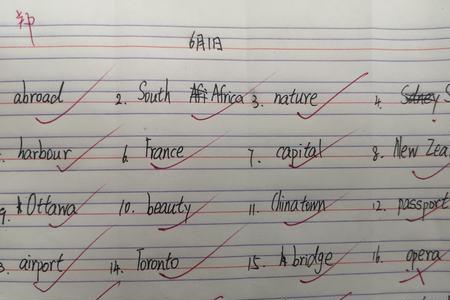 6月1日
abroad 2. South Africa 3. nature 4.
harbour 6. France 7. capital 8. New Zea
9. Ottawa 10. beauty 11. Chinatown 12. passport
3. airport 14. Toronto 15. bridge 16. opera